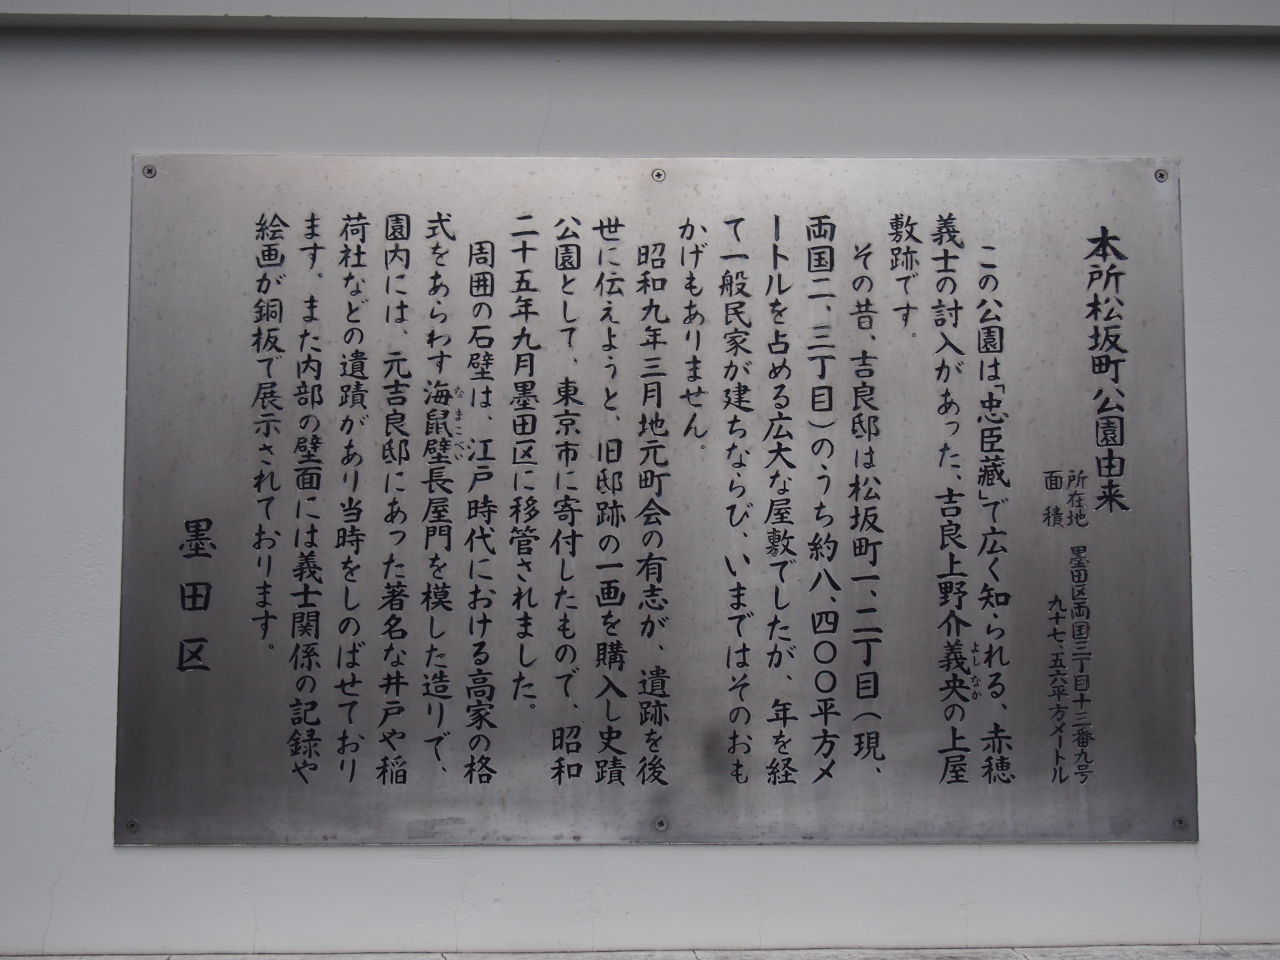 本所松坂町公園由来
所在地 墨田区両国三丁目十三番九号
面積 九十七、五六平方メートル
この公園は「忠臣蔵」で広く知られる、赤穂
義士の討入があった、吉良上野介義央の上屋
よしなか
敷跡です。
その昔、吉良邸は松坂町一、二丁目(現、
両国二、三丁目)のうち約八、四〇〇平方メ
ートルを占める広大な屋敷でしたが、年を経
て一般民家が建ちならび、いまではそのおも
かげもありません。
昭和九年三月地元町会の有志が、遺跡を後
世に伝えようと、旧邸跡の一画を購入し史蹟
公園として、東京市に寄付したもので、昭和
二十五年九月墨田区に移管されました。
周囲の石壁は、江戸時代における高家の格
式をあらわす海鼠壁長屋門を模した造りで、
なまこべい
園内には、元吉良邸にあった著名な井戸や稲
荷社などの遺蹟があり当時をしのばせており
ます。また内部の壁面には義士関係の記録や
絵画が銅板で展示されております。
墨田区